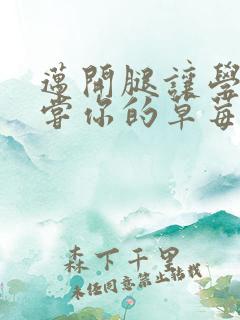 薖開腿讓學
嘗你的草莓
森下千里
未经同意禁止转载